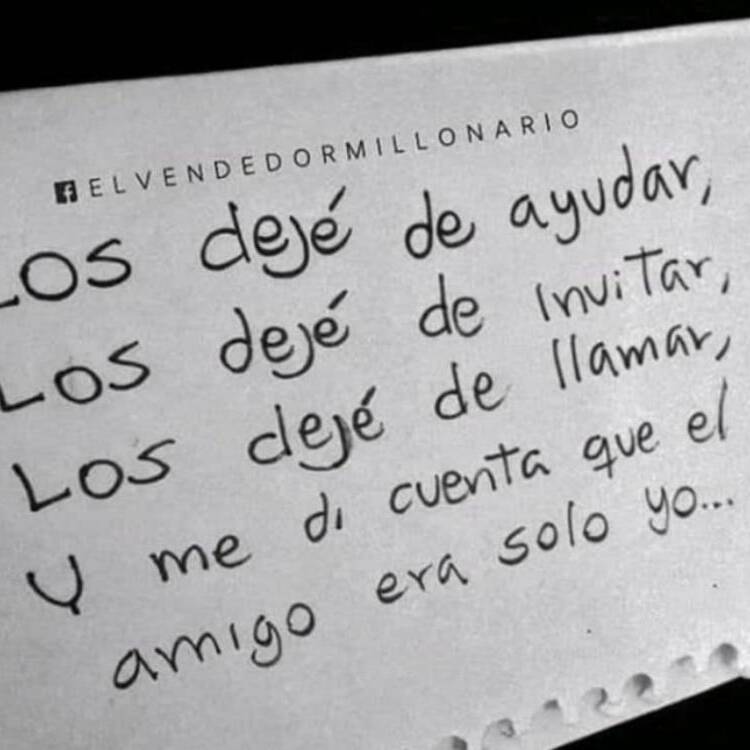 ELVENDEDORMILLONARIO
LOS dejé de ayudar,
LOS dejé de Invitar,
LOS dejé de llamar,
Y me di cuenta que el
amigo era solo yo...